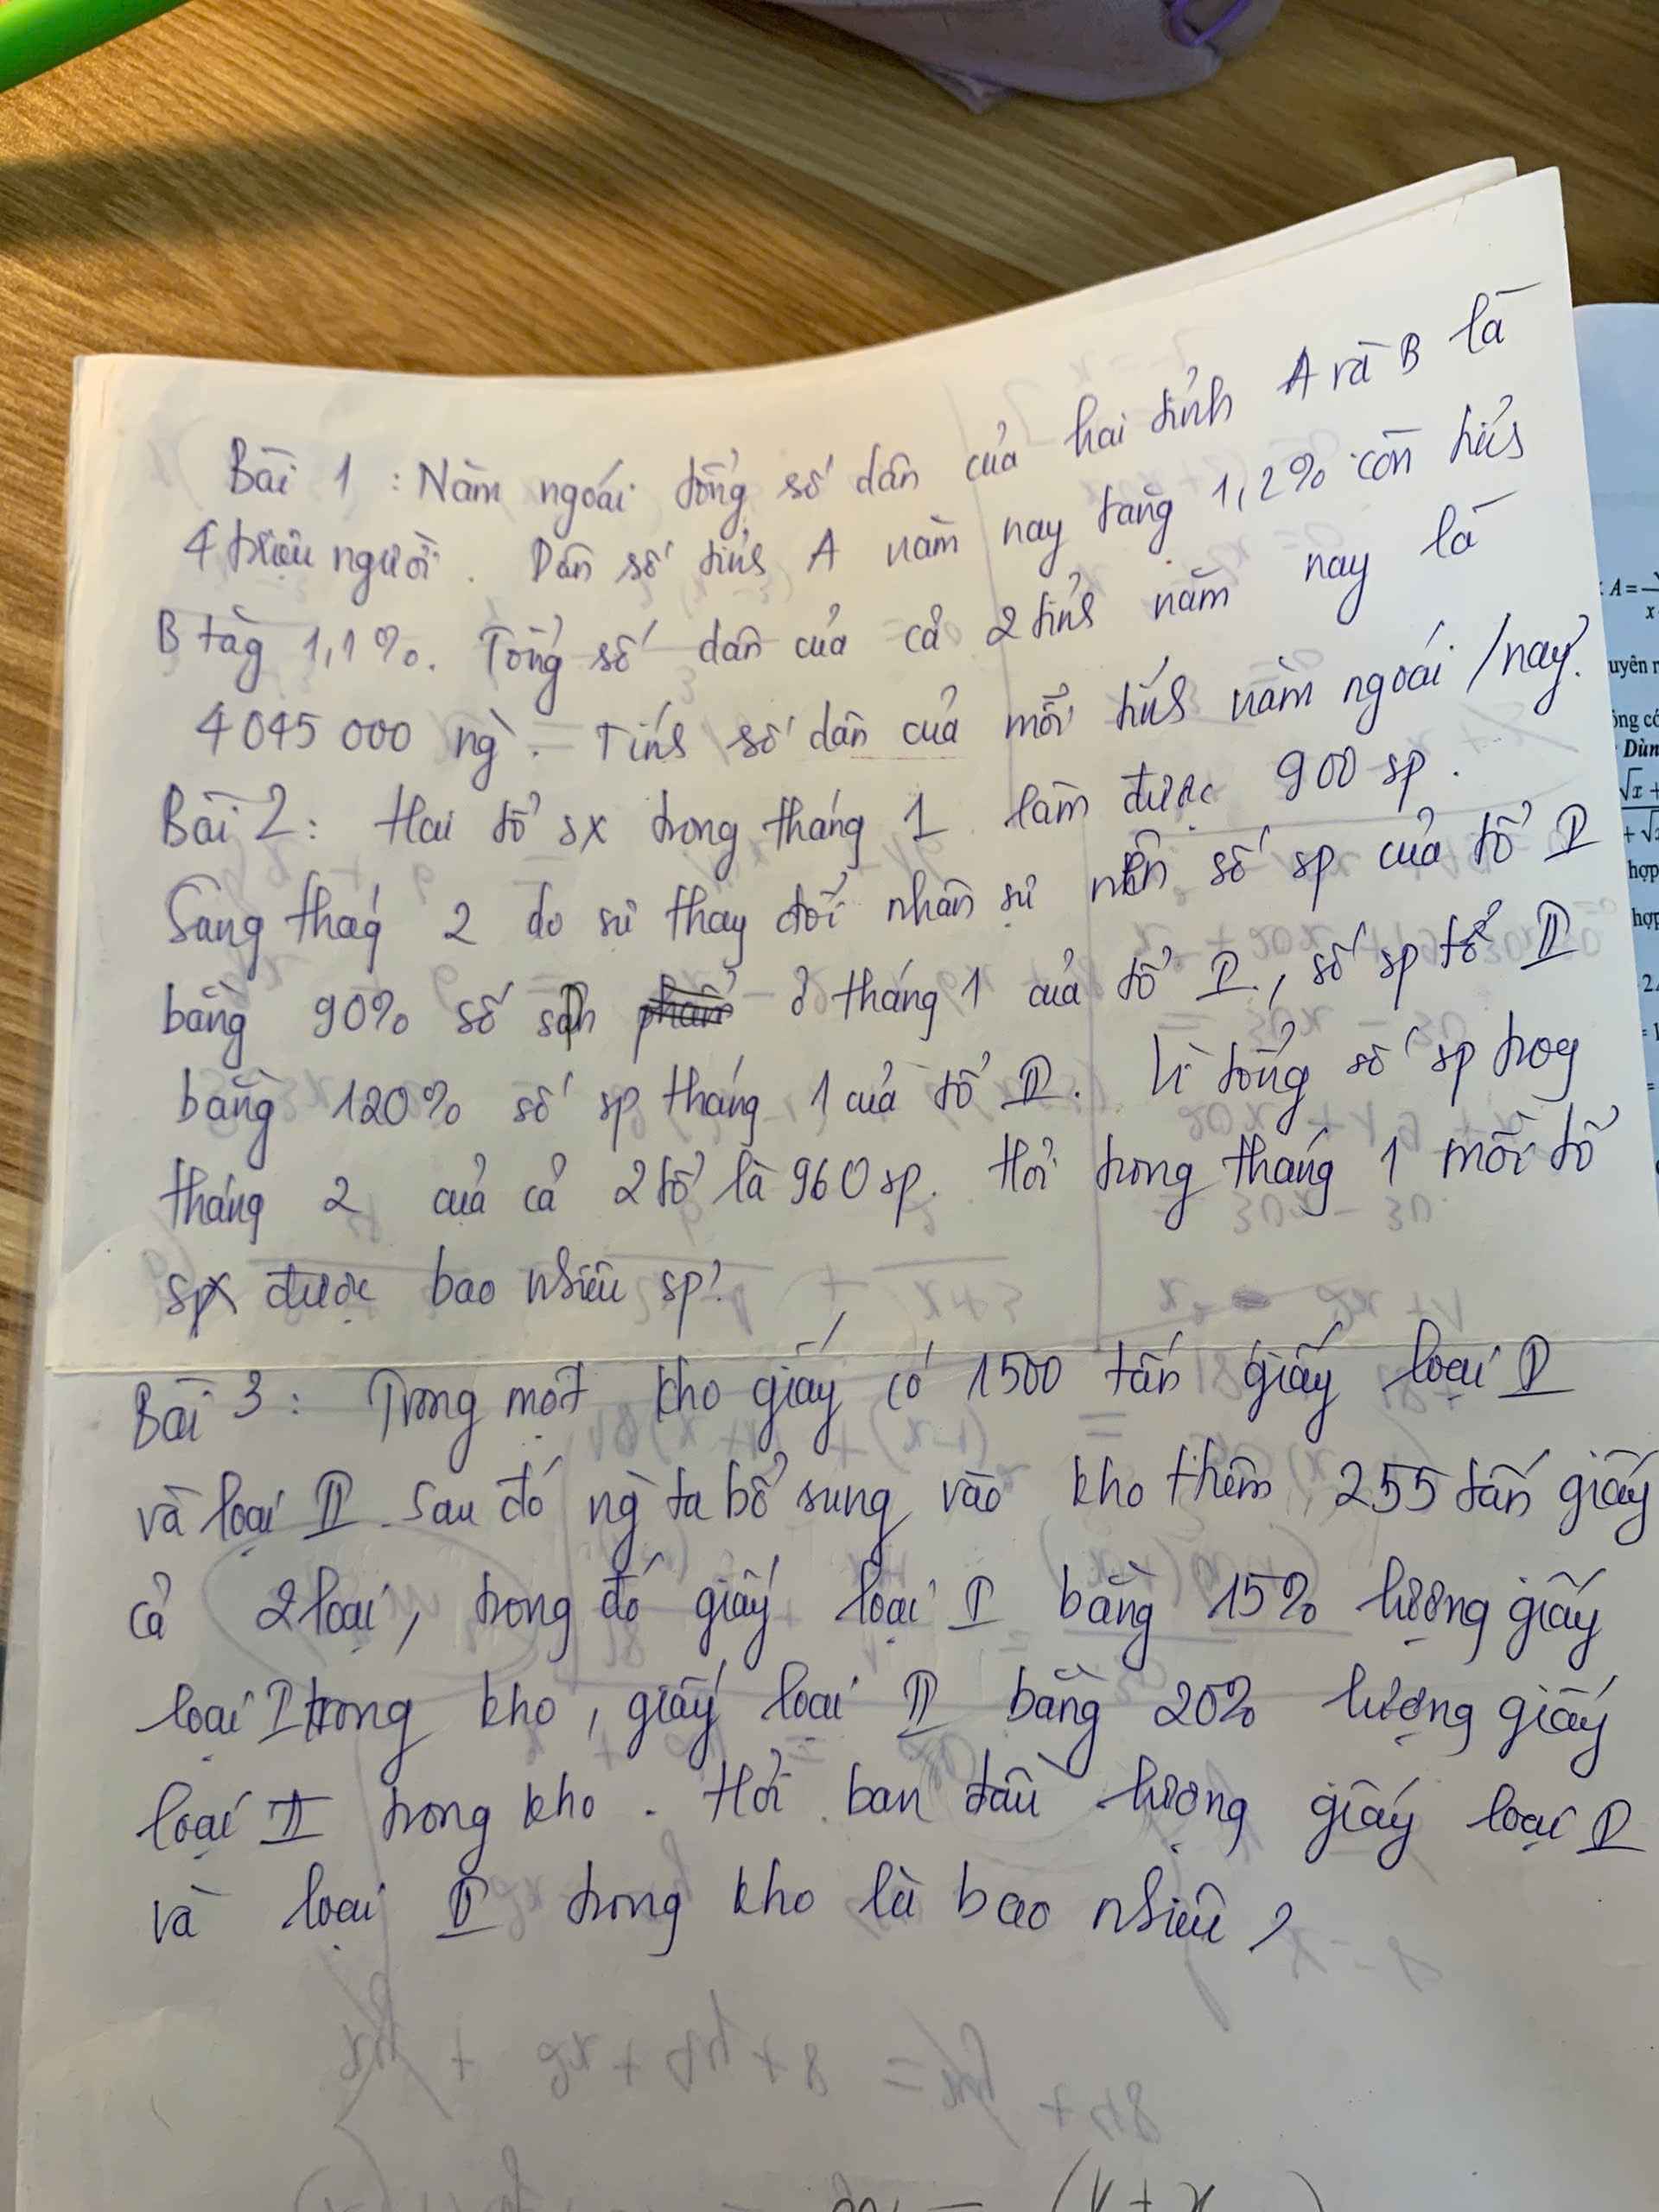 Bài 1 : Năm ngoái tổng số dân của hai tỉnh A và B là
4 triệu người. Dân số tỉnh A năm nay tăng 1,2% còn tỉnh
B tăg 1,1%. Tổng số dân của cả 2 tỉnh năm nay là
4 045 000 ng`. Tính số dân của mỗi tỉnh năm ngoái / nay?
Bài 2: Hai tổ sx trong tháng 1 làm được 900 sp.
Sang thág 2 do sự thay đổi nhân sự nên số sp của tổ I
bằng 90% số sp ở tháng 1 của tổ I, số sp tổ II
bằng 120% số sp tháng 1 của tổ II. Vì tổng số sp trog
tháng 2 của cả 2 tổ là 960 sp. Hỏi trong tháng 1 mỗi tổ
sx được bao nhiêu sp?
Bài 3: Trong một kho giấy có 1500 tấn giấy loại I
và loại II. Sau đó ng` ta bổ sung vào kho thêm 255 tấn giấy
cả 2 loại, trong đó giấy loại I bằng 15% lượng giấy
loại I trong kho, giấy loại II bằng 20% lượng giấy
loại II trong kho. Hỏi ban đầu lượng giấy loại I
và loại II trong kho là bao nhiêu?
A =
x
uyên
ông có
Dùn
√x +
hợp
hợp
2.